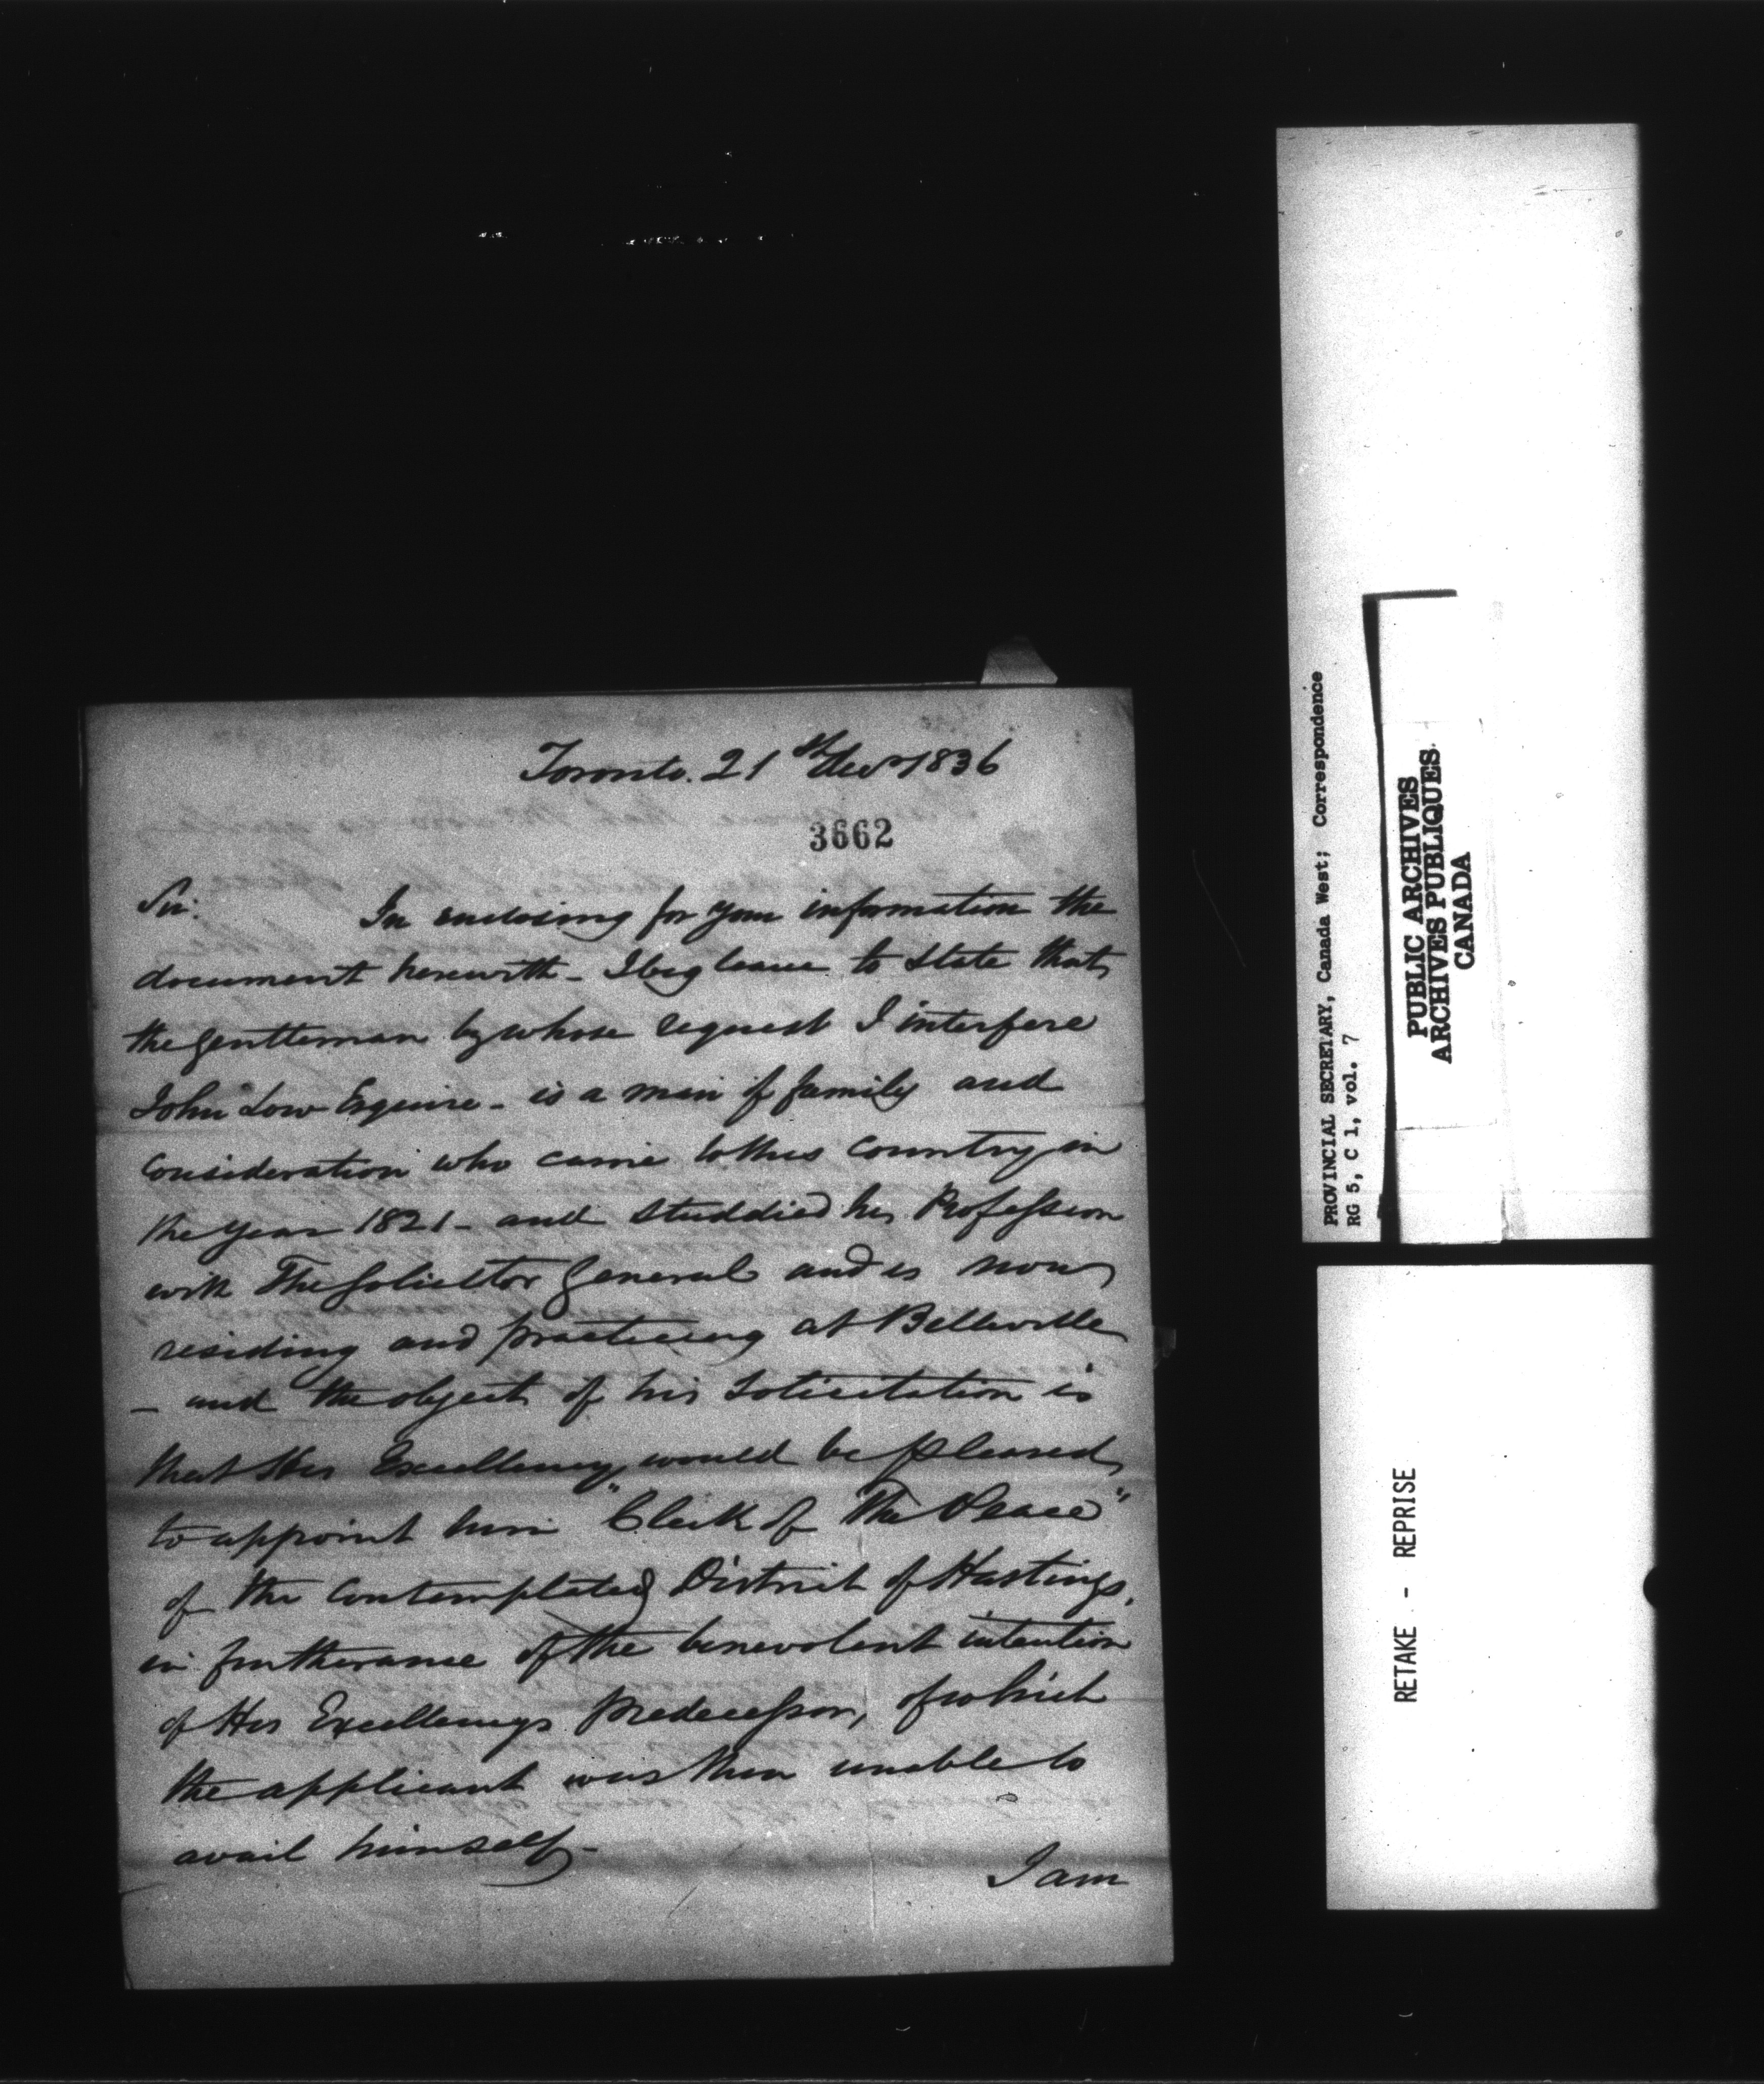 Toronto. 21st Decr 1836
3662
Sir.
In enclosing for your information the
document herewith - I beg leave to State that
the gentleman by whose request I interfere
John Low Esquire - is a man of family and
Consideration who came to this Country in
the Year 1821 - and Studdied his Profession
with The Solicitor General and is now
residing and practicing at Belleville
- and the object of his Solicitation is
that His Excellency would be pleased
to appoint him "Clerk of The Peace"
of the Contemplated District of Hastings,
in furtherance of the benevolent intention
of His Excellencys Predecessor, of which
the applicant was then unable to
avail himself -
I am
PROVINCIAL SECRETARY, Canada West; Correspondence
RG 5, C 1, vol. 7
PUBLIC ARCHIVES
ARCHIVES PUBLIQUES
CANADA
RETAKE - REPRISE